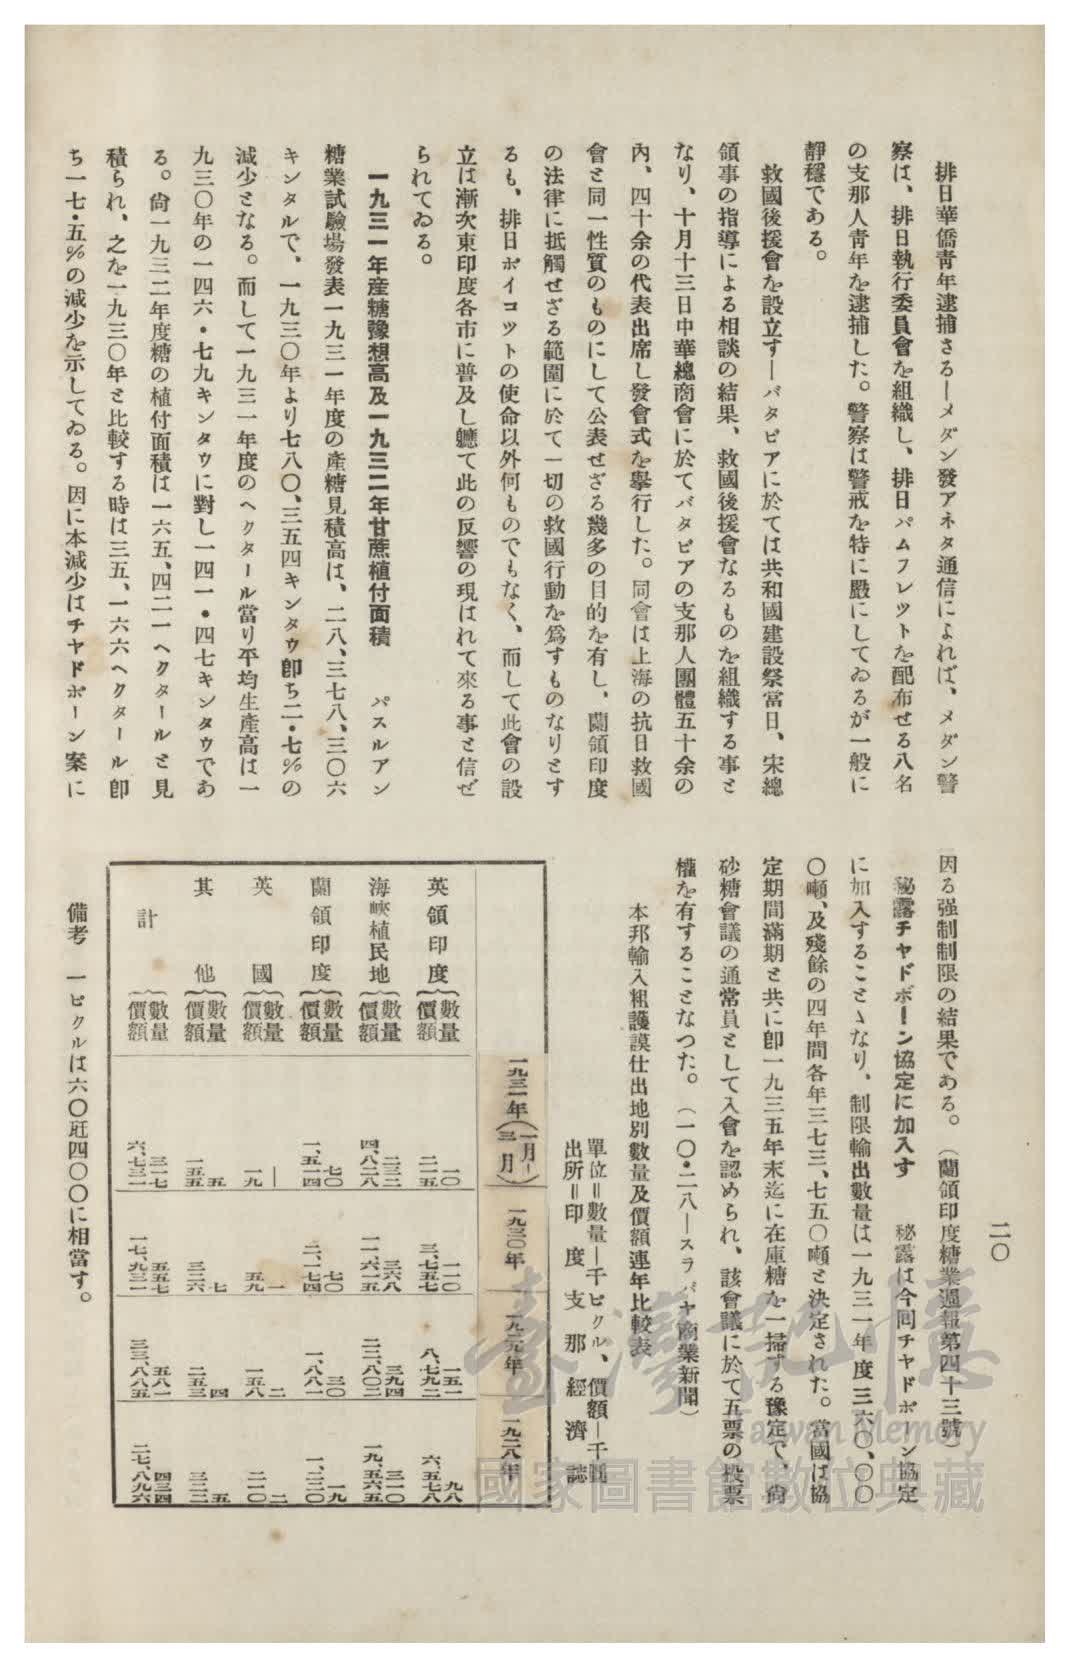 二〇
排日華僑靑年逮捕さる―メダン發アネタ通信によれば、メダン警
察は、排日執行委員會を組織し、排日パムフレツトを配布せる八名
の支那人靑年を逮捕した。警察は警戒を特に嚴にしてゐるが一般に
靜穩である。
救國後援會を設立す―バタビアに於ては共和國建設祭當日、宋總
領事の指導による相談の結果、救國後援會なるものを組織する事と
なり、十月十三日中華總商會に於てバタビアの支那人團體五十余の
內、四十余の代表出席し發會式を擧行した。同會は上海の抗日救國
會と同一性質のものにして公表せざる幾多の目的を有し、蘭領印度
の法律に抵觸せざる範圍に於て一切の救國行動を爲すものなりとす
るも、排日ボイコツトの使命以外何ものでもなく、而して此會の設
立は漸次東印度各市に普及し軈て此の反響の現はれて來る事と信ぜ
られてゐる。
一九三一年産糖豫想高及一九三二年甘蔗植付面積 パスルアン
糖業試驗場發表一九三一年度の產糖見積高は、二八、三七八、三〇六
キンタルで、一九三〇年より七八〇、三五四キンタウ卽ち二・七％の
減少となる。而して一九三一年度のヘクタール當り平均生產高は一
九三〇年の一四六・七九キンタウに對し一四一・四七キンタウであ
る。尙一九三二年度糖の植付面積は一六五、四二一ヘクタールと見
積られ、之を一九三〇年と比較する時は三五、一六六ヘクタール卽
ち一七・五％の減少を示してゐる。因に本減少はチヤドボーン案に
因る强制制限の結果である。（蘭領印度糖業週報第四十三號）
秘露チヤドボーン協定に加入す 秘露は今囘チヤドボーン協定
に加入することゝなり、制限輸出數量は一九三一年度三六〇、〇〇
〇噸、及殘餘の四年間各年三七三、七五〇噸と決定された。當國は協
定期間滿期と共に卽一九三五年末迄に在庫糖を一掃する豫定で、尙
砂糖會議の通常員として入會を認められ、該會議に於て五票の投票
權を有することなつた。（一〇・二八―スラバヤ商業新聞）
本邦輸入粗護謨仕出地別數量及價額連年比較表
單位＝數量―千ピクル、價額―千圓
出所＝印度支那經濟誌
一九三一年（一月―三月） 一九三〇年 一九二九年 一九二八年
英領印度 數量 一〇 一一〇 一五一 九八
價額 二一五 三、七五七 八、七九二 六、五七八
海峽植民地 數量 二三二 三六八 三九四 三一〇
價額 四、八二八 一一、六一五 二二、八〇二 一九、五六五
蘭領印度 數量 七〇 七〇 三〇 一九
價額 一、五一四 二、一七四 一、八八一 一、二二〇
英國 數量 ― 一 二 二
價額 一九 五九 一五八 二一〇
其他 數量 五 七 四 五
價額 一五五 三二六 二五三 三二二
計 數量 三一七 五五七 五八一 四三四
價額 六、七三一 一七、九三一 三三、八八五 二七、八九六
備考 一ピクルは六〇瓩四〇〇に相當す。
臺灣記憶
Taiwan Memory
國家圖書館數位典藏